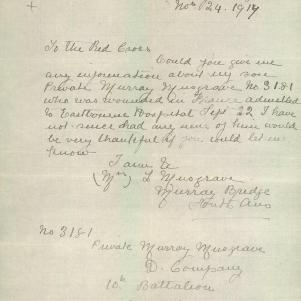 Nov 24. 1917
To the Red Cross
Could you give me
any information about my son
Private Murray Musgrave No 3181
who was wounded in France admitted
to Eastbourne Hospital Sept 22 I have
not since had any news of him would
be very thankful if you could let me
know
I am &
(Mrs) L Musgrave
Murray Bridge
South Aus
No 3181
Private Murray Musgrave
D. Company
10th Battalion